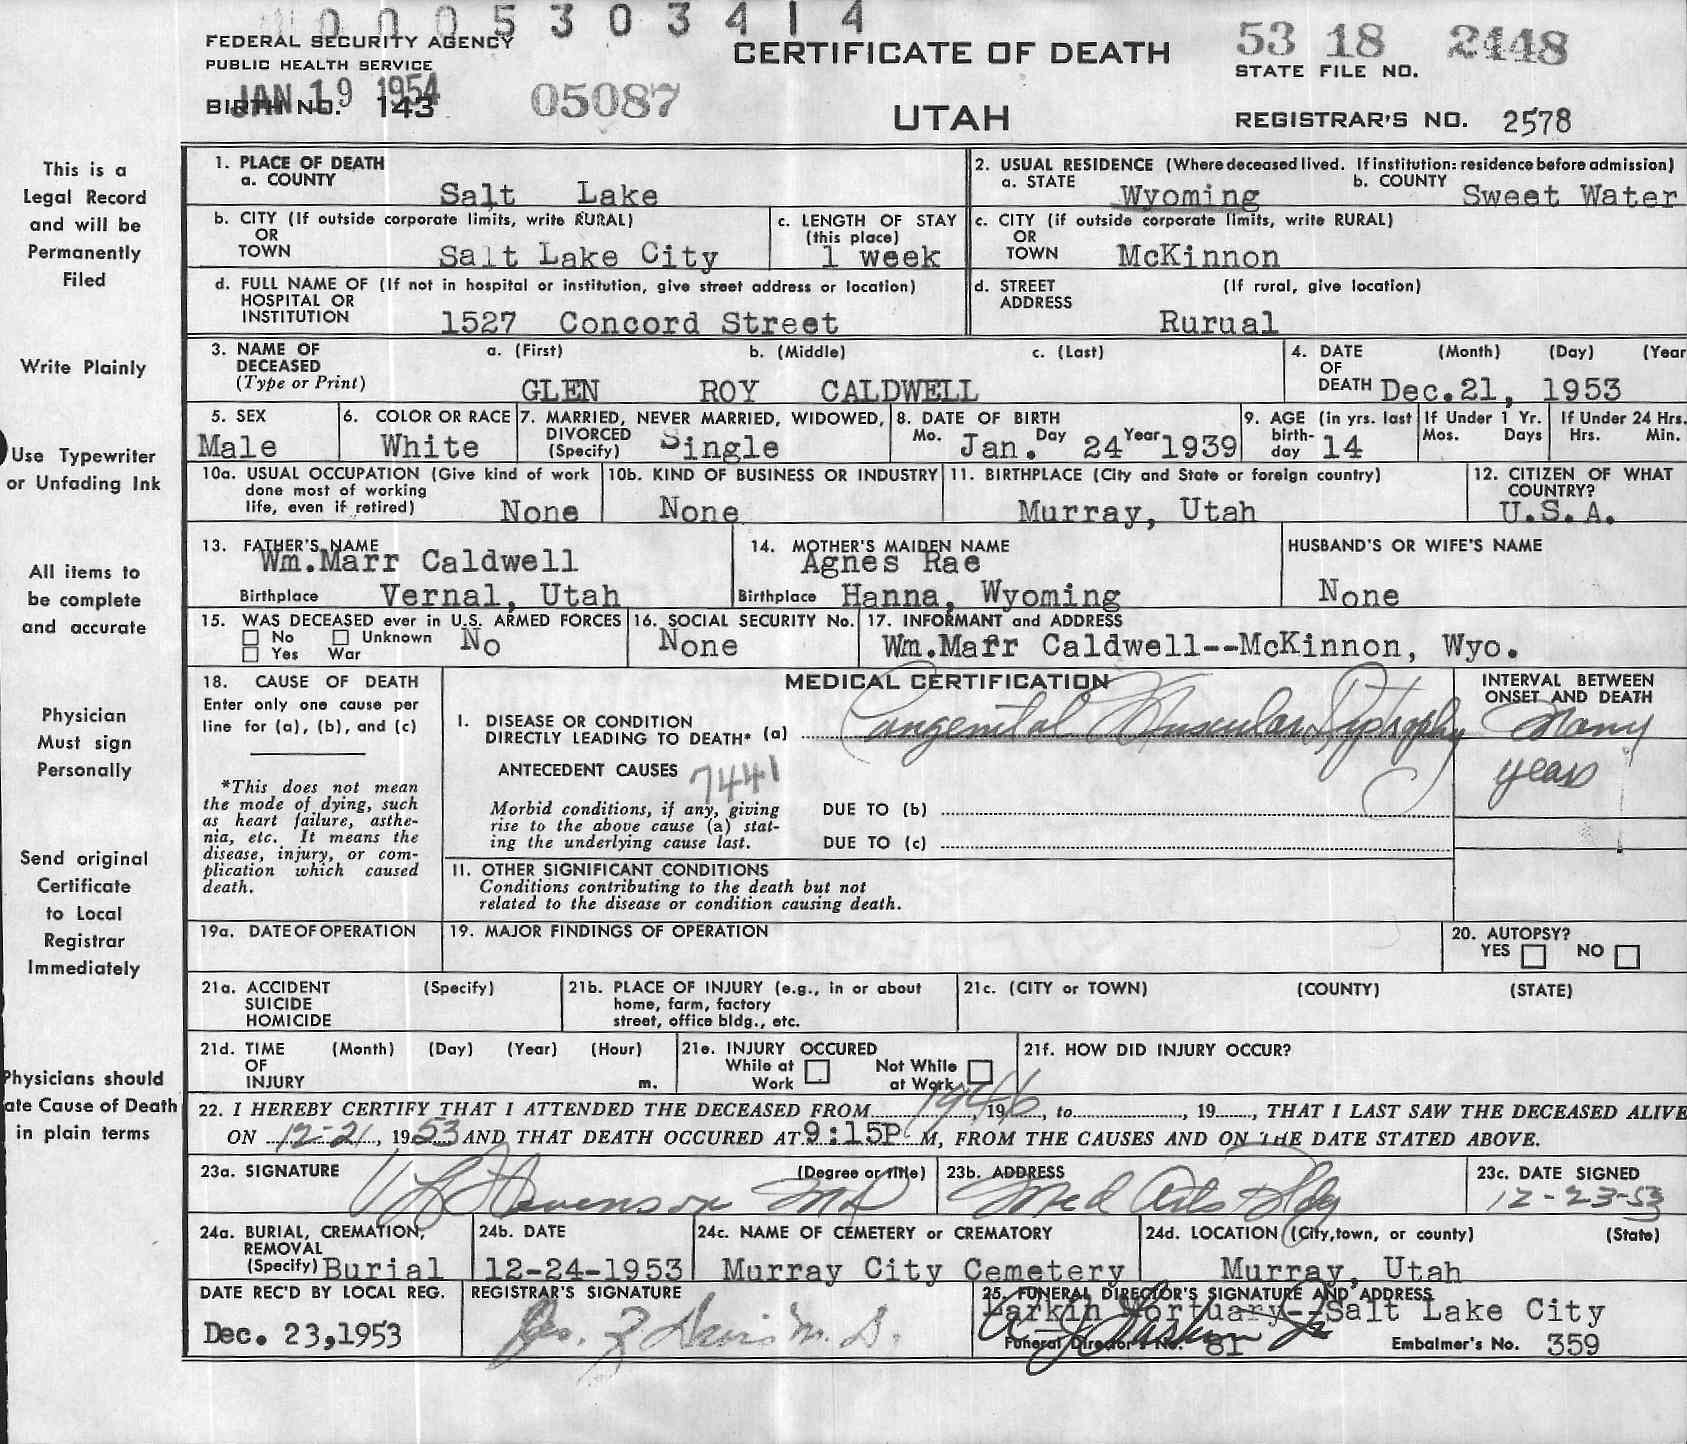 0005303414
FEDERAL SECURITY AGENCY
PUBLIC HEALTH SERVICE
CERTIFICATE OF DEATH
53 18 2448
STATE FILE NO.
JAN 19 1954
BIRTH NO. 143
05087
UTAH
REGISTRAR'S NO. 2578
This is a
Legal Record
and will be
Permanently
Filed
Write Plainly
Use Typewriter
or Unfading Ink
All items to
be complete
and accurate
Physician
Must sign
Personally
Send original
Certificate
to Local
Registrar
Immediately
Physicians should
ate Cause of Death
in plain terms
1. PLACE OF DEATH
a. COUNTY Salt Lake
2. USUAL RESIDENCE (Where deceased lived. If institution: residence before admission)
a. STATE Wyoming b. COUNTY Sweet Water
b. CITY (If outside corporate limits, write RURAL)
OR
TOWN Salt Lake City
c. LENGTH OF STAY
(this place)
1 week
c. CITY (if outside corporate limits, write RURAL)
OR
TOWN McKinnon
d. FULL NAME OF (If not in hospital or institution, give street address or location)
HOSPITAL OR
INSTITUTION 1527 Concord Street
d. STREET (If rural, give location)
ADDRESS Rurual
3. NAME OF DECEASED a. (First) b. (Middle) c. (Last)
(Type or Print) GLEN ROY CALDWELL
4. DATE (Month) (Day) (Year
OF
DEATH Dec.21, 1953
5. SEX
Male
6. COLOR OR RACE
White
7. MARRIED, NEVER MARRIED, WIDOWED,
DIVORCED
(Specify) Single
8. DATE OF BIRTH
Mo. Jan. Day 24 Year 1939
9. AGE (in yrs. last
birth-
day 14
If Under 1 Yr.
Mos. Days
If Under 24 Hrs.
Hrs. Min.
10a. USUAL OCCUPATION (Give kind of work
done most of working
life, even if retired) None
10b. KIND OF BUSINESS OR INDUSTRY
None
11. BIRTHPLACE (City and State or foreign country)
Murray, Utah
12. CITIZEN OF WHAT
COUNTRY?
U.S.A.
13. FATHER'S NAME
Wm.Marr Caldwell
Birthplace Vernal, Utah
14. MOTHER'S MAIDEN NAME
Agnes Rae
Birthplace Hanna, Wyoming
HUSBAND'S OR WIFE'S NAME
None
15. WAS DECEASED ever in U.S. ARMED FORCES
No Unknown No
Yes War
16. SOCIAL SECURITY No.
None
17. INFORMANT and ADDRESS
Wm.Marr Caldwell--McKinnon, Wyo.
18. CAUSE OF DEATH
Enter only one cause per
line for (a), (b), and (c)
*This does not mean
the mode of dying, such
as heart failure, asthe-
nia, etc. It means the
disease, injury, or com-
plication which caused
death.
MEDICAL CERTIFICATION
I. DISEASE OR CONDITION
DIRECTLY LEADING TO DEATH* (a) Congenital Muscular Dystrophy
INTERVAL BETWEEN
ONSET AND DEATH
Many
years
ANTECEDENT CAUSES 7441
Morbid conditions, if any, giving
rise to the above cause (a) stat-
ing the underlying cause last.
DUE TO (b)
DUE TO (c)
11. OTHER SIGNIFICANT CONDITIONS
Conditions contributing to the death but not
related to the disease or condition causing death.
19a. DATE OF OPERATION
19. MAJOR FINDINGS OF OPERATION
20. AUTOPSY?
YES NO
21a. ACCIDENT (Specify)
SUICIDE
HOMICIDE
21b. PLACE OF INJURY (e.g., in or about
home, farm, factory
street, office bldg., etc.
21c. (CITY or TOWN) (COUNTY) (STATE)
21d. TIME (Month) (Day) (Year) (Hour)
OF
INJURY m.
21e. INJURY OCCURED
While at Work Not While at Work
21f. HOW DID INJURY OCCUR?
22. I HEREBY CERTIFY THAT I ATTENDED THE DECEASED FROM 1946, 19, to, 19, THAT I LAST SAW THE DECEASED ALIVE
ON 12-21, 1953 AND THAT DEATH OCCURED AT 9:15P M, FROM THE CAUSES AND ON THE DATE STATED ABOVE.
23a. SIGNATURE (Degree or title)
Stevenson MD
23b. ADDRESS
Med Arts Bldg
23c. DATE SIGNED
12-23-53
24a. BURIAL, CREMATION,
REMOVAL
(Specify) Burial
24b. DATE
12-24-1953
24c. NAME OF CEMETERY OR CREMATORY
Murray City Cemetery
24d. LOCATION (City, town, or county) (State)
Murray, Utah
DATE REC'D BY LOCAL REG.
Dec. 23,1953
REGISTRAR'S SIGNATURE
25. FUNERAL DIRECTOR'S SIGNATURE AND ADDRESS
Larkin Mortuary--Salt Lake City
Funeral Director's No. 81 Embalmer's No. 359